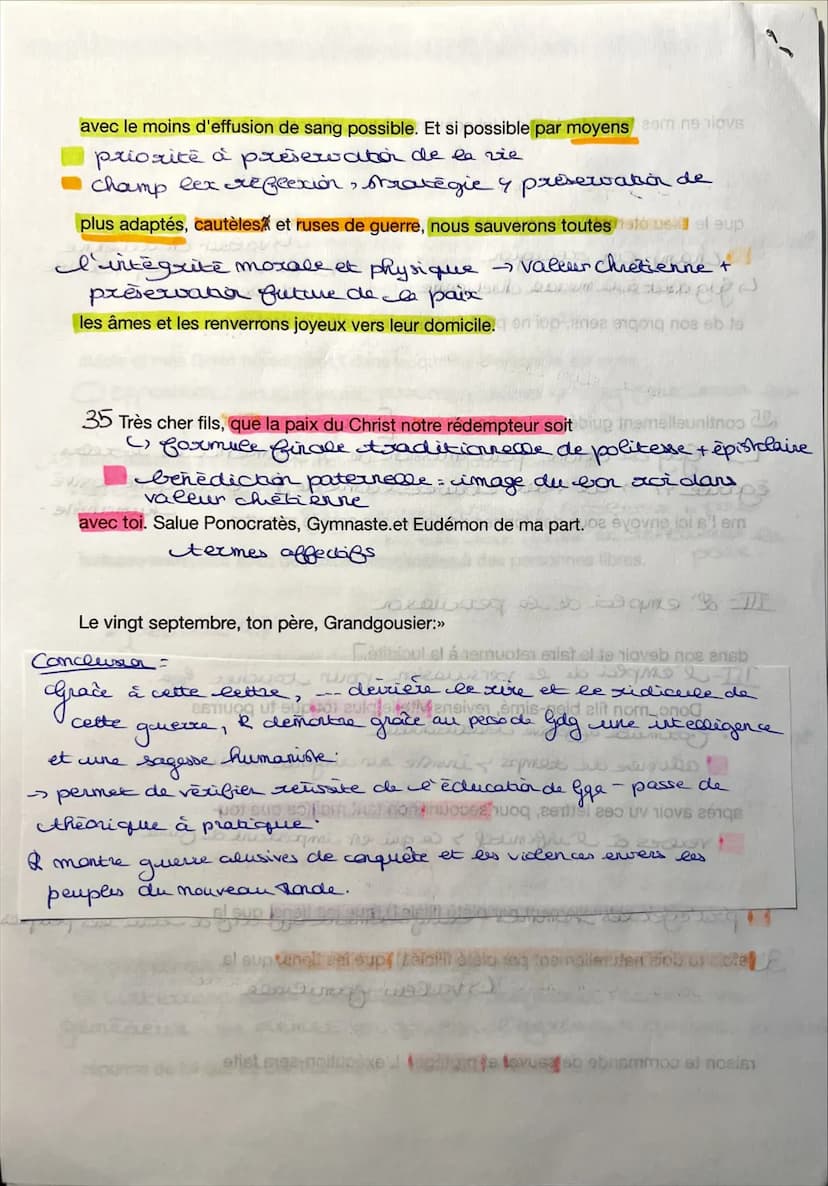 avec le moins d'effusion de sang possible. Et si possible par moyens
priorité à préservation de la vie
champ lex réflexion, stratégie & préservation de
plus adaptés, cautèles et ruses de guerre, nous sauverons toutes
l'intégrité morale et physique → valeur chrétienne +
préservation future de la paix
les âmes et les renverrons joyeux vers leur domicile.
35 Très cher fils, que la paix du Christ notre rédempteur soit
↳ formule finale traditionnelle de politesse + épistolaire
bénédiction paternelle = image du bon roi dans
valeur chétienne
avec toi. Salue Ponocratès, Gymnaste.et Eudémon de ma part.
termes affectifs
Le vingt septembre, ton père, Grandgousier:»
Conclusion =
Grâce à cette lettre, --- derière le rire et le ridicule de
cette guerre, R démontre grâce au perso de Gdg une intelligence
et une sagesse humaniste.
→ permet de vérifier réussite de l'éducation de Gga - passe de
théorique à pratique.
R montre guerre abusives de conquête et les violences envers les
peuples du nouveau monde.